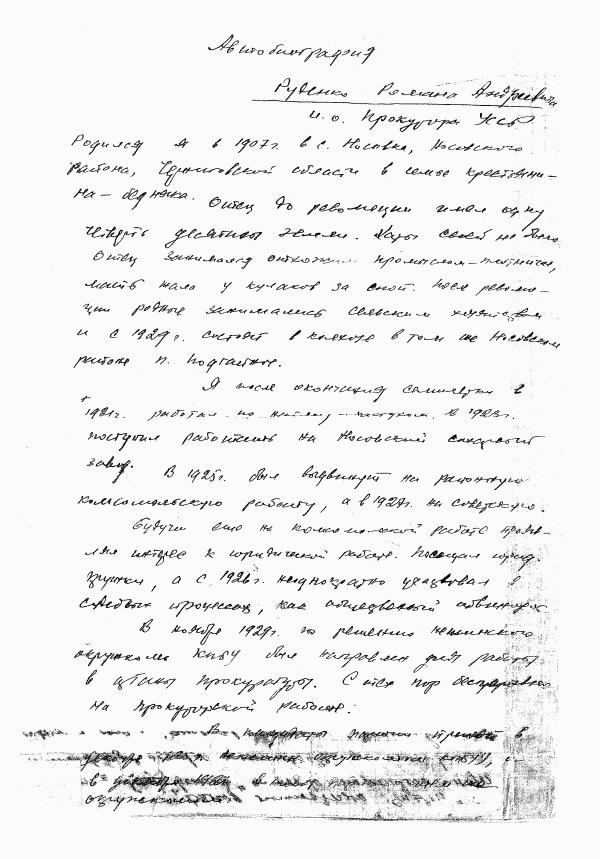 Автобиография
Руденко Романа Андреевича
и.о. Прокурора УССР
Родился я в 1907г. в с. Носовка, Носовского
района, Черниговской области в семье крестьяни-
на-бедняка. Отец до революции имел одну
четверть десятины земли. Хаты своей не было.
Отец занимался отхожим промыслом-плотничал,
мать жала у кулаков за сноп. После револю-
ции родные занимались сельским хозяйством
и с 1929г. состоят в колхозе в том же Носовском
районе п. Подгайное.
Я после окончания семилетки в
1921г. работал по найму-пастухом. В 1923г.
поступил работать на Носовский сахарный
завод. В 1925г. был выдвинут на районную
комсомольскую работу, а в 1927г. на советскую.
Будучи еще на комсомольской работе прояв-
лял интерес к юридической работе. Посещал юрид.
кружки, а с 1926г. неоднократно участвовал в
судебных процессах, как общественный обвинитель.
В ноябре 1929г. по решению нежинского
окружкома КП/б/У был направлен для работы
в органы прокуратуры. С тех пор беспрерывно
на прокурорской работе.
В кандидаты партии принят в
декабре нежинским окружкомом КП/б/У,
в
окружкомом